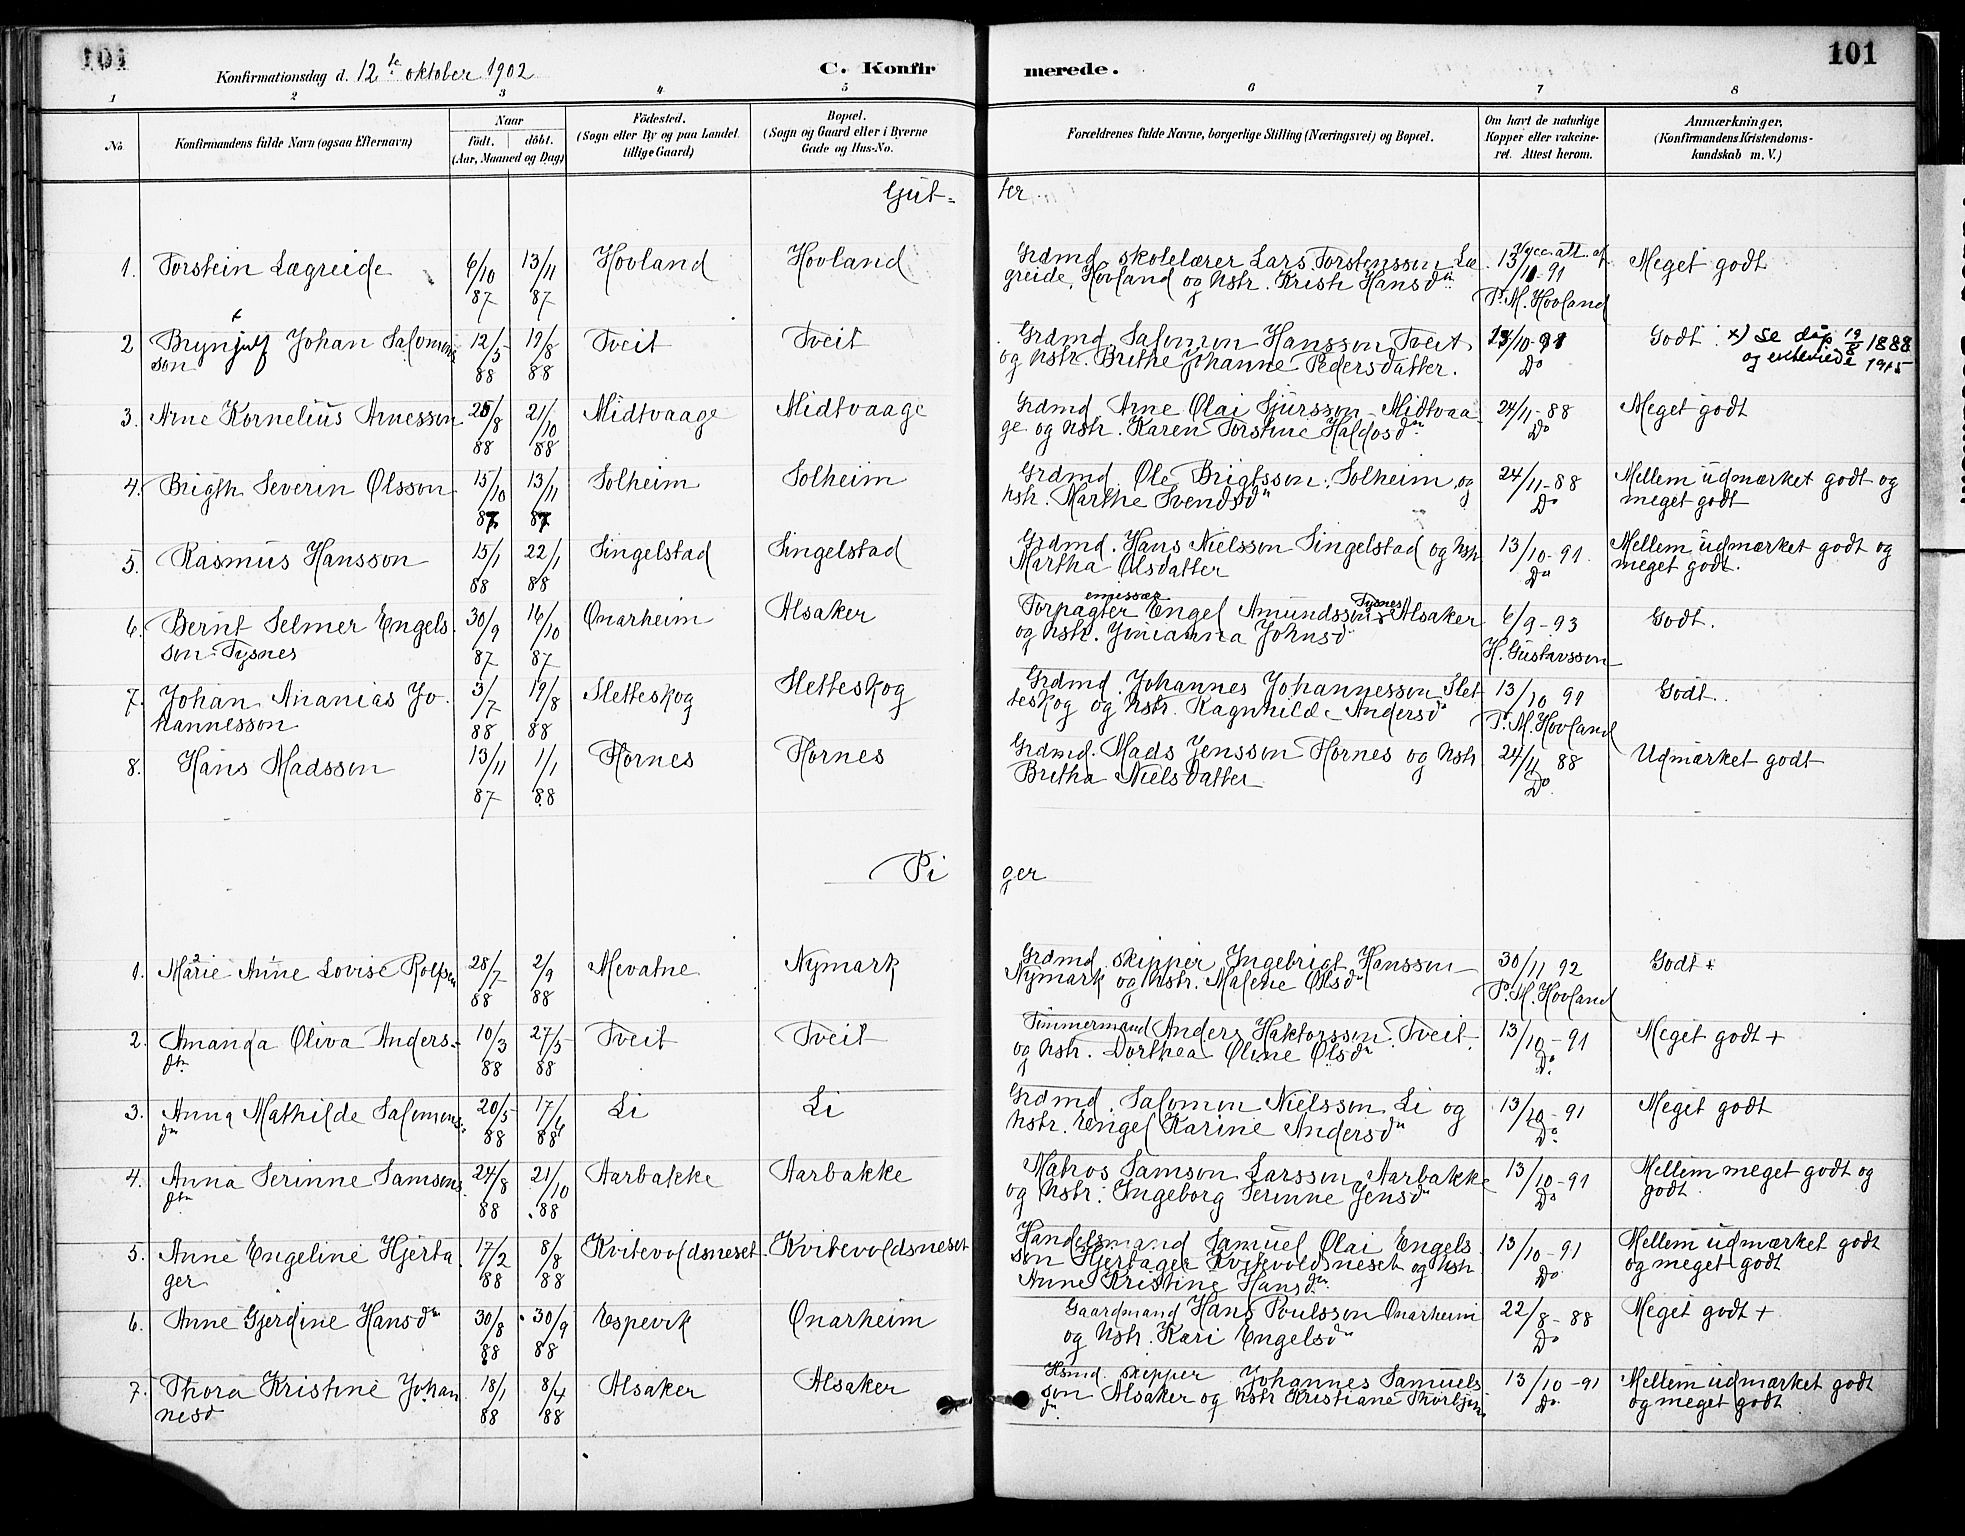 101
Konfirmationsdag d. 12te oktober 1902
C. Konfir merede.
101
1 2 3 4 5 6 7 8
No
Konfirmandens fulde Navn (ogsaa Efternavn)
Naar
födt. döbt.
(Aar, Maaned og Dag)
Födested.
(Sogn eller By og paa Landet tillige Gaard)
Bopæl.
(Sogn og Gaard eller i Byerne Gade og Hus-No.
Forældrenes fulde Navne, borgerlige Stilling (Næringsvei) og Bopæl.
Om havt de naturlige Kopper eller vakcineret. Attest herom.
Anmærkninger.
(Konfirmandens Kristendomskundskab m. V.)
Gut- ter
1. Torstein Lægreide 6/10 87 13/11 87 Hovland Hovland Grdmd. skolelærer Lars Torstensson Lægreide, Hovland og hstr. Kristi Hansdtr 13/10-91 P. M. Hovland Meget godt
2 Brynjulf Johan Salomonsson 12/5 88 19/8 88 Tveit Tveit Grdmd. Salomon Hansson Tveit og hstr. Brithe Johanne Pedersdatter. 13/10-91 Do Godt x) Se dåp 19/8 1888 og 1915
3. Arne Kornelius Arnesson 25/8 88 21/10 88 Midtvaage Midtvaage Grdmd. Arne Olai Sjursson Midtvaage og hstr. Karen Torstine Haldosdtr 24/11-88 Do Meget godt
4. Brigth Severin Olsson 15/10 87 13/11 87 Solheim Solheim Grdmd. Ole Brigtsson Solheim og hstr. Marthe Svendsdtr 24/11-88 Do Mellem udmærket godt og meget godt
5. Rasmus Hansson 15/1 88 22/1 88 Singelstad Singelstad Grdmd. Hans Nielsson Singelstad og hstr Martha Olsdatter 13/10-91. Do Mellem udmærket godt og meget godt.
6. Bernt Selmer Engelsson Tysnes 30/9 87 16/10 87 Onarheim Alsaker Forpagter emissær Engel Amundsson Tysnes Alsaker og hstr. Johanna Johnsd 6/9-93 H. Gustavsson Godt.
7. Johan Ananias Johannesson 3/7 88 19/8 88 Sletteskog Sletteskog Grdmd. Johannes Johannesson Sletteskog og hstr. Ragnhilde Andersdtr 13/10 91 P. M. Hovland Godt.
8. Hans Madsson 13/11 87 1/1 88 Hornes Hornes Grdmd. Mads Jensson Hornes og hstr Britha Nielsdatter 24/11 88 Do Udmærket godt
Pi ger
1. Marie Anne Lovise Rolfsen 28/7 88 2/9 88 Mevatne Nymark Grdmd. skipper Ingebrigt Hansson Nymark og hstr. Malene Olsdtr 30/11 92 P. M. Hovland Godt +
2. Amanda Oliva Andersdtr 10/3 88 27/5 88 Tveit Tveit Timmermand Anders Haktorsson Tveit og hstr. Dorthea Oline Olsdtr 13/10-91 Do. Meget godt +
3. Anna Mathilde Salomonsdtr 20/5 88 17/6 88 Li Li Grdmd. Salomon Nielsson Li og hstr. Engel Karine Andersdtr 13/10-91 Do. Meget godt
4. Anna Serinne Samsonsdtr 24/8 88 21/10 88 Aarbakke Aarbakke Matros Samson Larsson Aarbakke og hstr. Ingeborg Serinne Jensdtr 13/10-91 Do Mellem meget godt og godt.
5. Anne Engeline Hjertager 17/2 88 8/8 88 Kvitevoldsneset Kvitevoldsneset Handelsmand Samuel Olai Engelsson Hjertager Kvitevoldsneset og hstr Anne Kristine Hansdtr 13/10-91 Do. Mellem udmærket godt og meget godt
6. Anne Gjerdine Hansdtr 30/8 88 30/9 88 Espevik Onarheim Gaardmand Hans Poulsson Onarheim og hstr. Kari Engelsdtr 22/8-88 Do Meget godt +
7. Thora Kristine Johannesd 18/1 88 8/4 88 Alsaker Alsaker Hsmd. skipper Johannes Samuelsson Alsaker og hstr Kristiane 13/10-91 Do. Mellem udmærket godt og meget godt